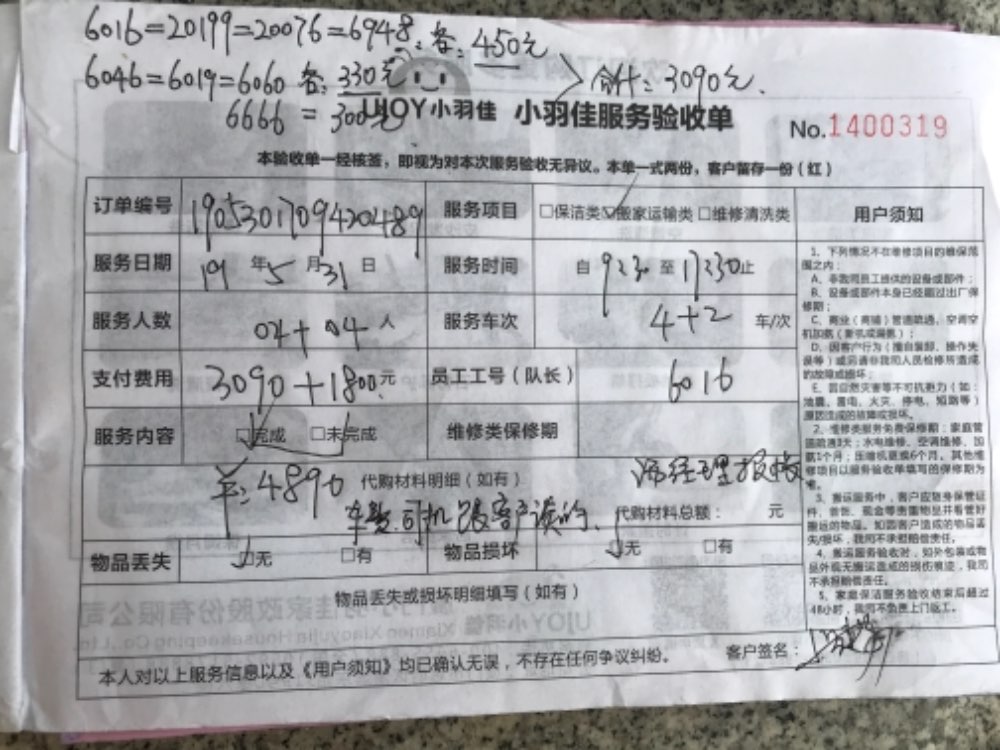 6016=20199=20076=6948,各:450元
6046=6019=6060 各:330元 > 合计:3090元.
6666 = 300元
UJOY小羽佳 小羽佳服务验收单 No.1400319
本验收单一经核签,即视为对本次服务验收无异议。本单一式两份,客户留存一份(红)
订单编号 1905301709430489 服务项目 □保洁类☑搬家运输类□维修清洗类 用户须知
服务日期 19年5月31日 服务时间 自 9:30 至 17:30止
服务人数 04+04人 服务车次 4+2 车/次
支付费用 3090+1800元 员工工号(队长) 6016
服务内容 ☑完成 □未完成 维修类保修期
1、下列情况不在维修项目的维保范围之内:
A、非我司员工提供的设备或部件;
B、设备或部件本身已经超过出厂保修期;
C、商业(商铺)管道疏通、空调空机加氨(新机或漏氨);
D、因客户行为(擅自装卸、操作失误等)或另请非我司人员检修所造成的故障或损坏;
E、因自然灾害等不可抗力(如:地震、雷电、火灾、停电、短路等)原因造成的故障或损坏。
2、维修类服务免费保修期:家庭管道疏通3天;水电维修、空调维修、加氨1个月;压缩机更换6个月。其他维修项目以服务验收单填写的保修期为准。
3、搬运服务中,客户应随身保管证件、首饰、现金等贵重物品并看管好搬运的物品。如因客户造成的物品丢失/损坏,我司不承担赔偿责任。
4、搬运服务验收时,如外包装或物品外观无搬运造成的损伤痕迹,我司不承担赔偿责任。
5、家庭保洁服务验收结束后超过48小时,我司不负责上门返工。
羊:4890 代购材料明细(如有) 经理报价
车费司机跟客户谈的、 代购材料总额: 元
物品丢失 ☑无 □有 物品损坏 ☑无 □有
物品丢失或损坏明细填写(如有)
本人对以上服务信息以及《用户须知》均已确认无误,不存在任何争议纠纷。 客户签名: